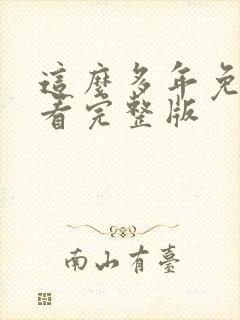 這麼多年免
看完整版
南山有臺